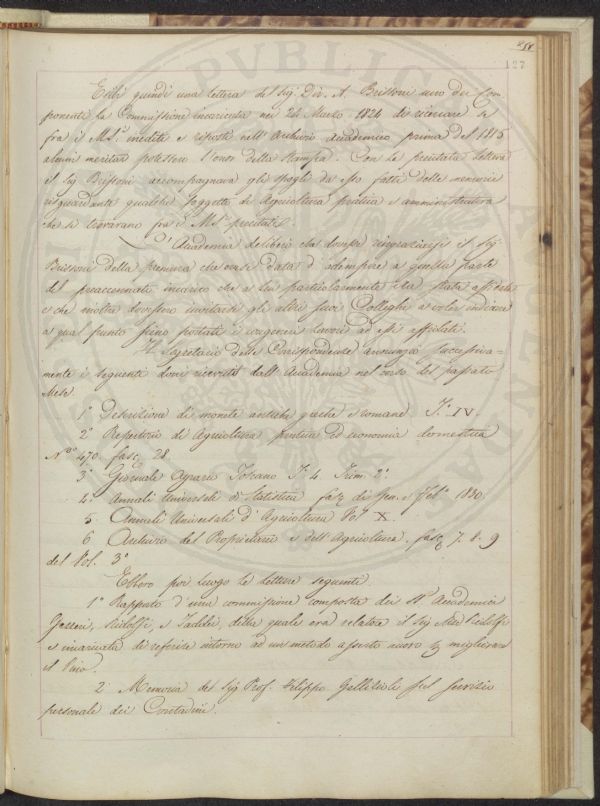 127
Esibì quindi una lettera del Sig. Dir. A. Brissoni uno dei Com-
ponenti la Commissione incaricata nei 24 Marzo 1824 di ricercare se
fra i M.S.ti inediti e riposti nell'Archivio Accademico prima del 1815
alcuni meritar potessero l'onor della Stampa. Con la precitata lettera
il Sig. Brissoni accompagnava gli spogli da esso fatti delle memorie
risguardante qualche soggetto di Agricoltura pratica e amministrativa
che si trovarano fra i M.S. precitati.
L'Accademia deliberò che dovesse ringraziarsi il Sig.
Brissoni della premura che erasi data d'adempire a quella parte
del preaccennato incarico che a lui particolarmente era stata affidata
e che inoltre dovessero invitarsi gli altri suoi Colleghi a voler indicare
a qual punto siano portati i congeneri lavori ad essi affidati.
Il Segretario delle Corrispondenze annunziò successiva-
mente i seguenti doni ricevuti dall'Accademia nel corso del passato
Mese.
1.° Descrizione di monete antiche greche e romane T.° IV.
2.° Repertorio di Agricoltura pratica ed economia domestica
N.° 470. fasc. 28.
3.° Giornale Agrario Toscano T. 4 Trim. 2.°
4. Annali Universali di Statistica faz. di Gen. e Feb.° 1830.
5. Annali Universali d'Agricoltura Vol. X.
6. Archivio del Proprietario e dell'Agricoltura. fasc. 7. 8. 9
del Vol. 3.°
Ebbero poi luogo le letture seguenti.
1.° Rapporto d'una commissione composta dei SS. Accademici
Gazzeri, Ridolfi, e Taddei, della quale era relatore il Sig. Mse Ridolfi
e incaricata di referire intorno ad un metodo asserto nuovo per migliorare
il Vino.
2.° Memoria del Sig. Prof. Filippo Gallizioli sul servizio
personale dei Contadini.